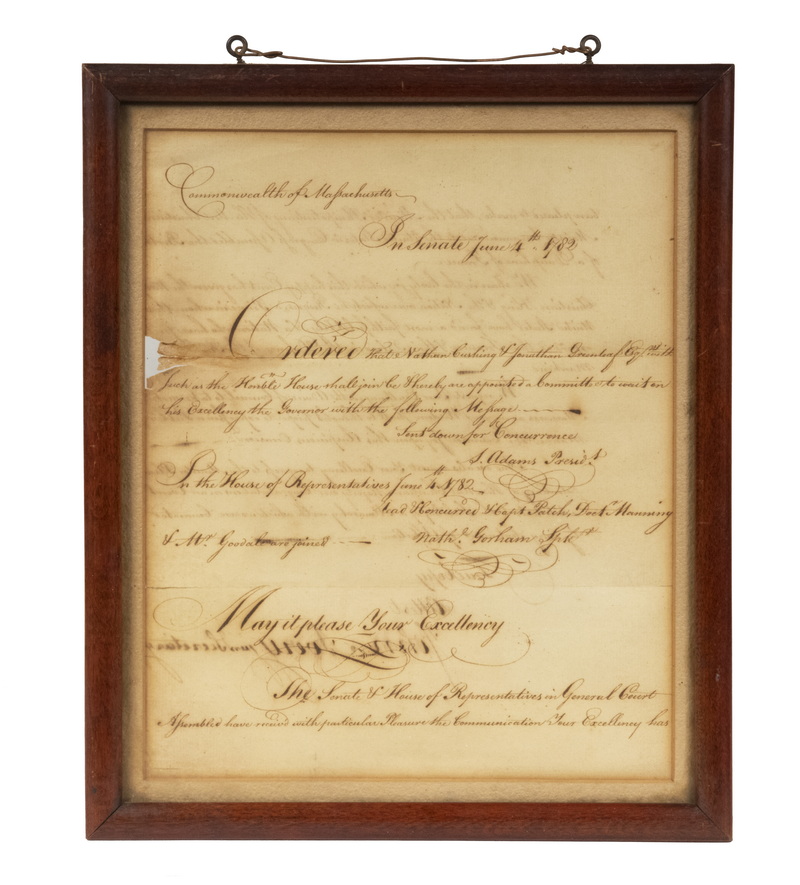 Commonwealth of Massachusetts
In Senate June 4th 1782
Ordered that Nathan Cushing & Jonathan Greenleaf Esqrs with
such as the Honble House shall join be & hereby are appointed a Committee to wait on
his Excellency the Governor with the following Message
Sent down for Concurrence
S. Adams Presidt
In the House of Representatives June 4th 1782
Read & Concurred & Capt Patch, Doctr Manning
& Mr Goodale are joined
Nathl Gorham Spkr
May it please Your Excellency
The Senate & House of Representatives in General Court
Assembled have receivd with particular Pleasure the Communication Your Excellency has